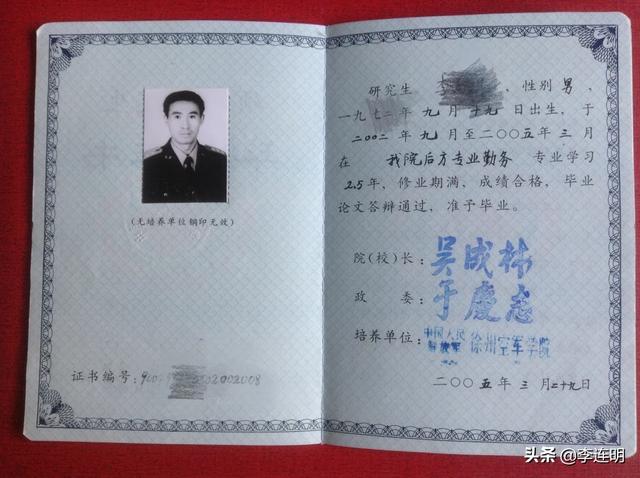 (无培养单位钢印无效)
证书编号:
02002008
研究生 , 性别男,
一九七二年九月十九日出生, 于
二〇〇二年九月至二〇〇五年三月
在 我院后方专业勤务 专业学习
2.5年, 修业期满, 成绩合格, 毕业
论文答辩通过, 准予毕业。
院(校)长: 吴成林
政 委: 于慶志
培养单位: 中国人民解放军 徐州空军学院
二〇〇五年三月二十九日
头条 @李连明